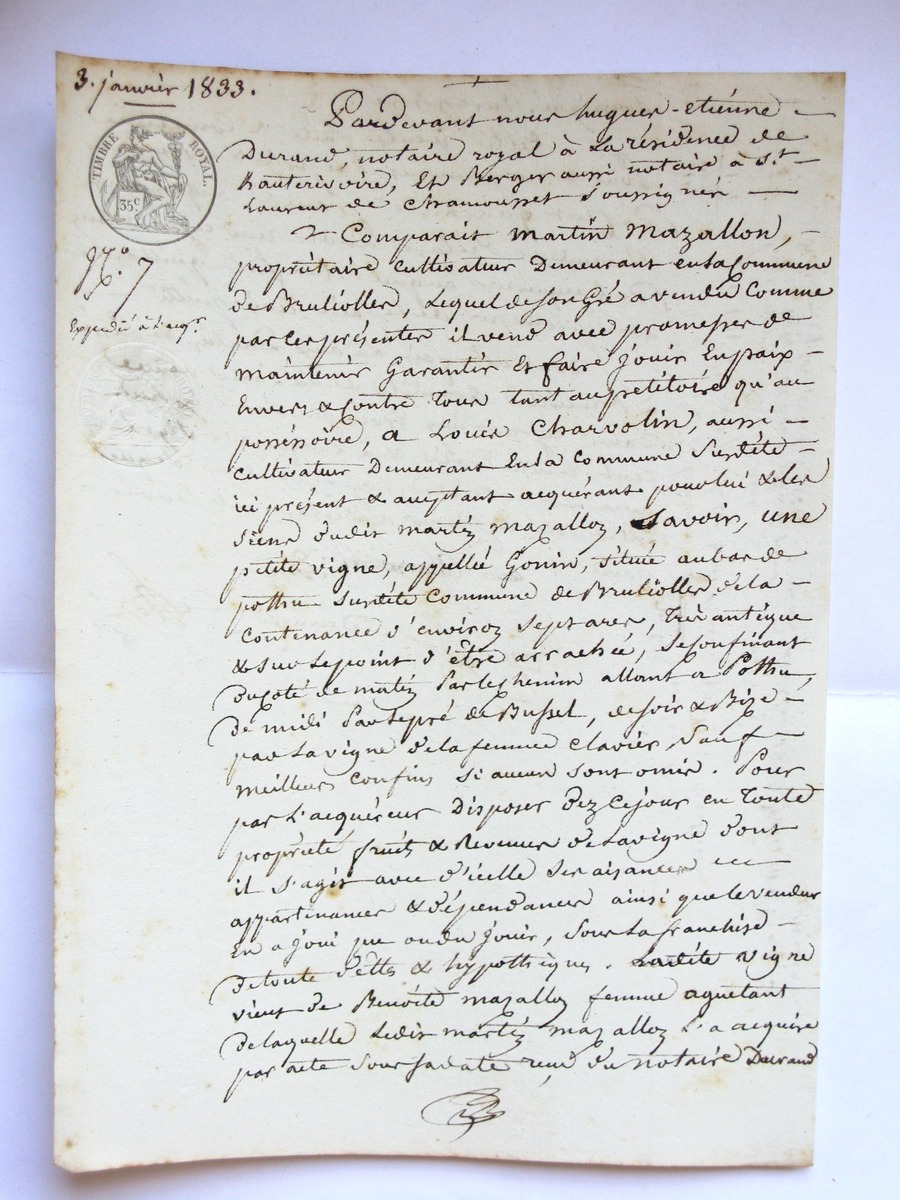 3. janvier 1833.
TIMBRE ROYAL.
35c
N.o 7
Expédié à l'acqr.
Pardevant nous hugues-etiénne
Durand, notaire royal à La résidence de
hauterivoire, Et Berger aussi notaire à St.
Laurent de Chamousset Soussignés
Comparait martin Mazallon,
propriétaire cultivateur Demeurant en la Commune
de Bruliolles, Lequel de son Gré a vendu Comme
par Ces présentes il vend avec promesses de
maintenir Garantir Et faire jouir En paix
Envers & Contre Tous tant au pétitoire qu'au
possessoire, a Louis Charvolin, aussi
cultivateur Demeurant En la Commune Susdite
ici présent & acceptant acquérant pour lui & les
siens dudit martin mazallon, Savoir, une
petite vigne, appellée Gonin, située au bas de
pothu susdite Commune de Brulioles de la
Contenance d'environ sept ares, Très antique
& sur le point d'être arrachée, se Confinant
du Coté de matin Par le chemin allant a Pothu,
De midi Par le pré de Bussel, de soir & Bize
par la vigne de la femme Clavier, Sauf
meilleurs Confins si aucun sont omis. Pour
par L'acquéreur Disposer dez Ce jour en Toute
propriété fruits & Revenus de La vigne dont
il s'agit avec d'icelle ses aisances
appartinances & dépendances ainsi que le vendeur
En a joui pu ou du jouir, sous La franchise
de toute dettes & hypothèques. Ladite vigne
vient de Benoite mazallon femme
de laquelle Ledit martin mazallon L'a acquise
par acte sous sa date reçu du notaire Durand